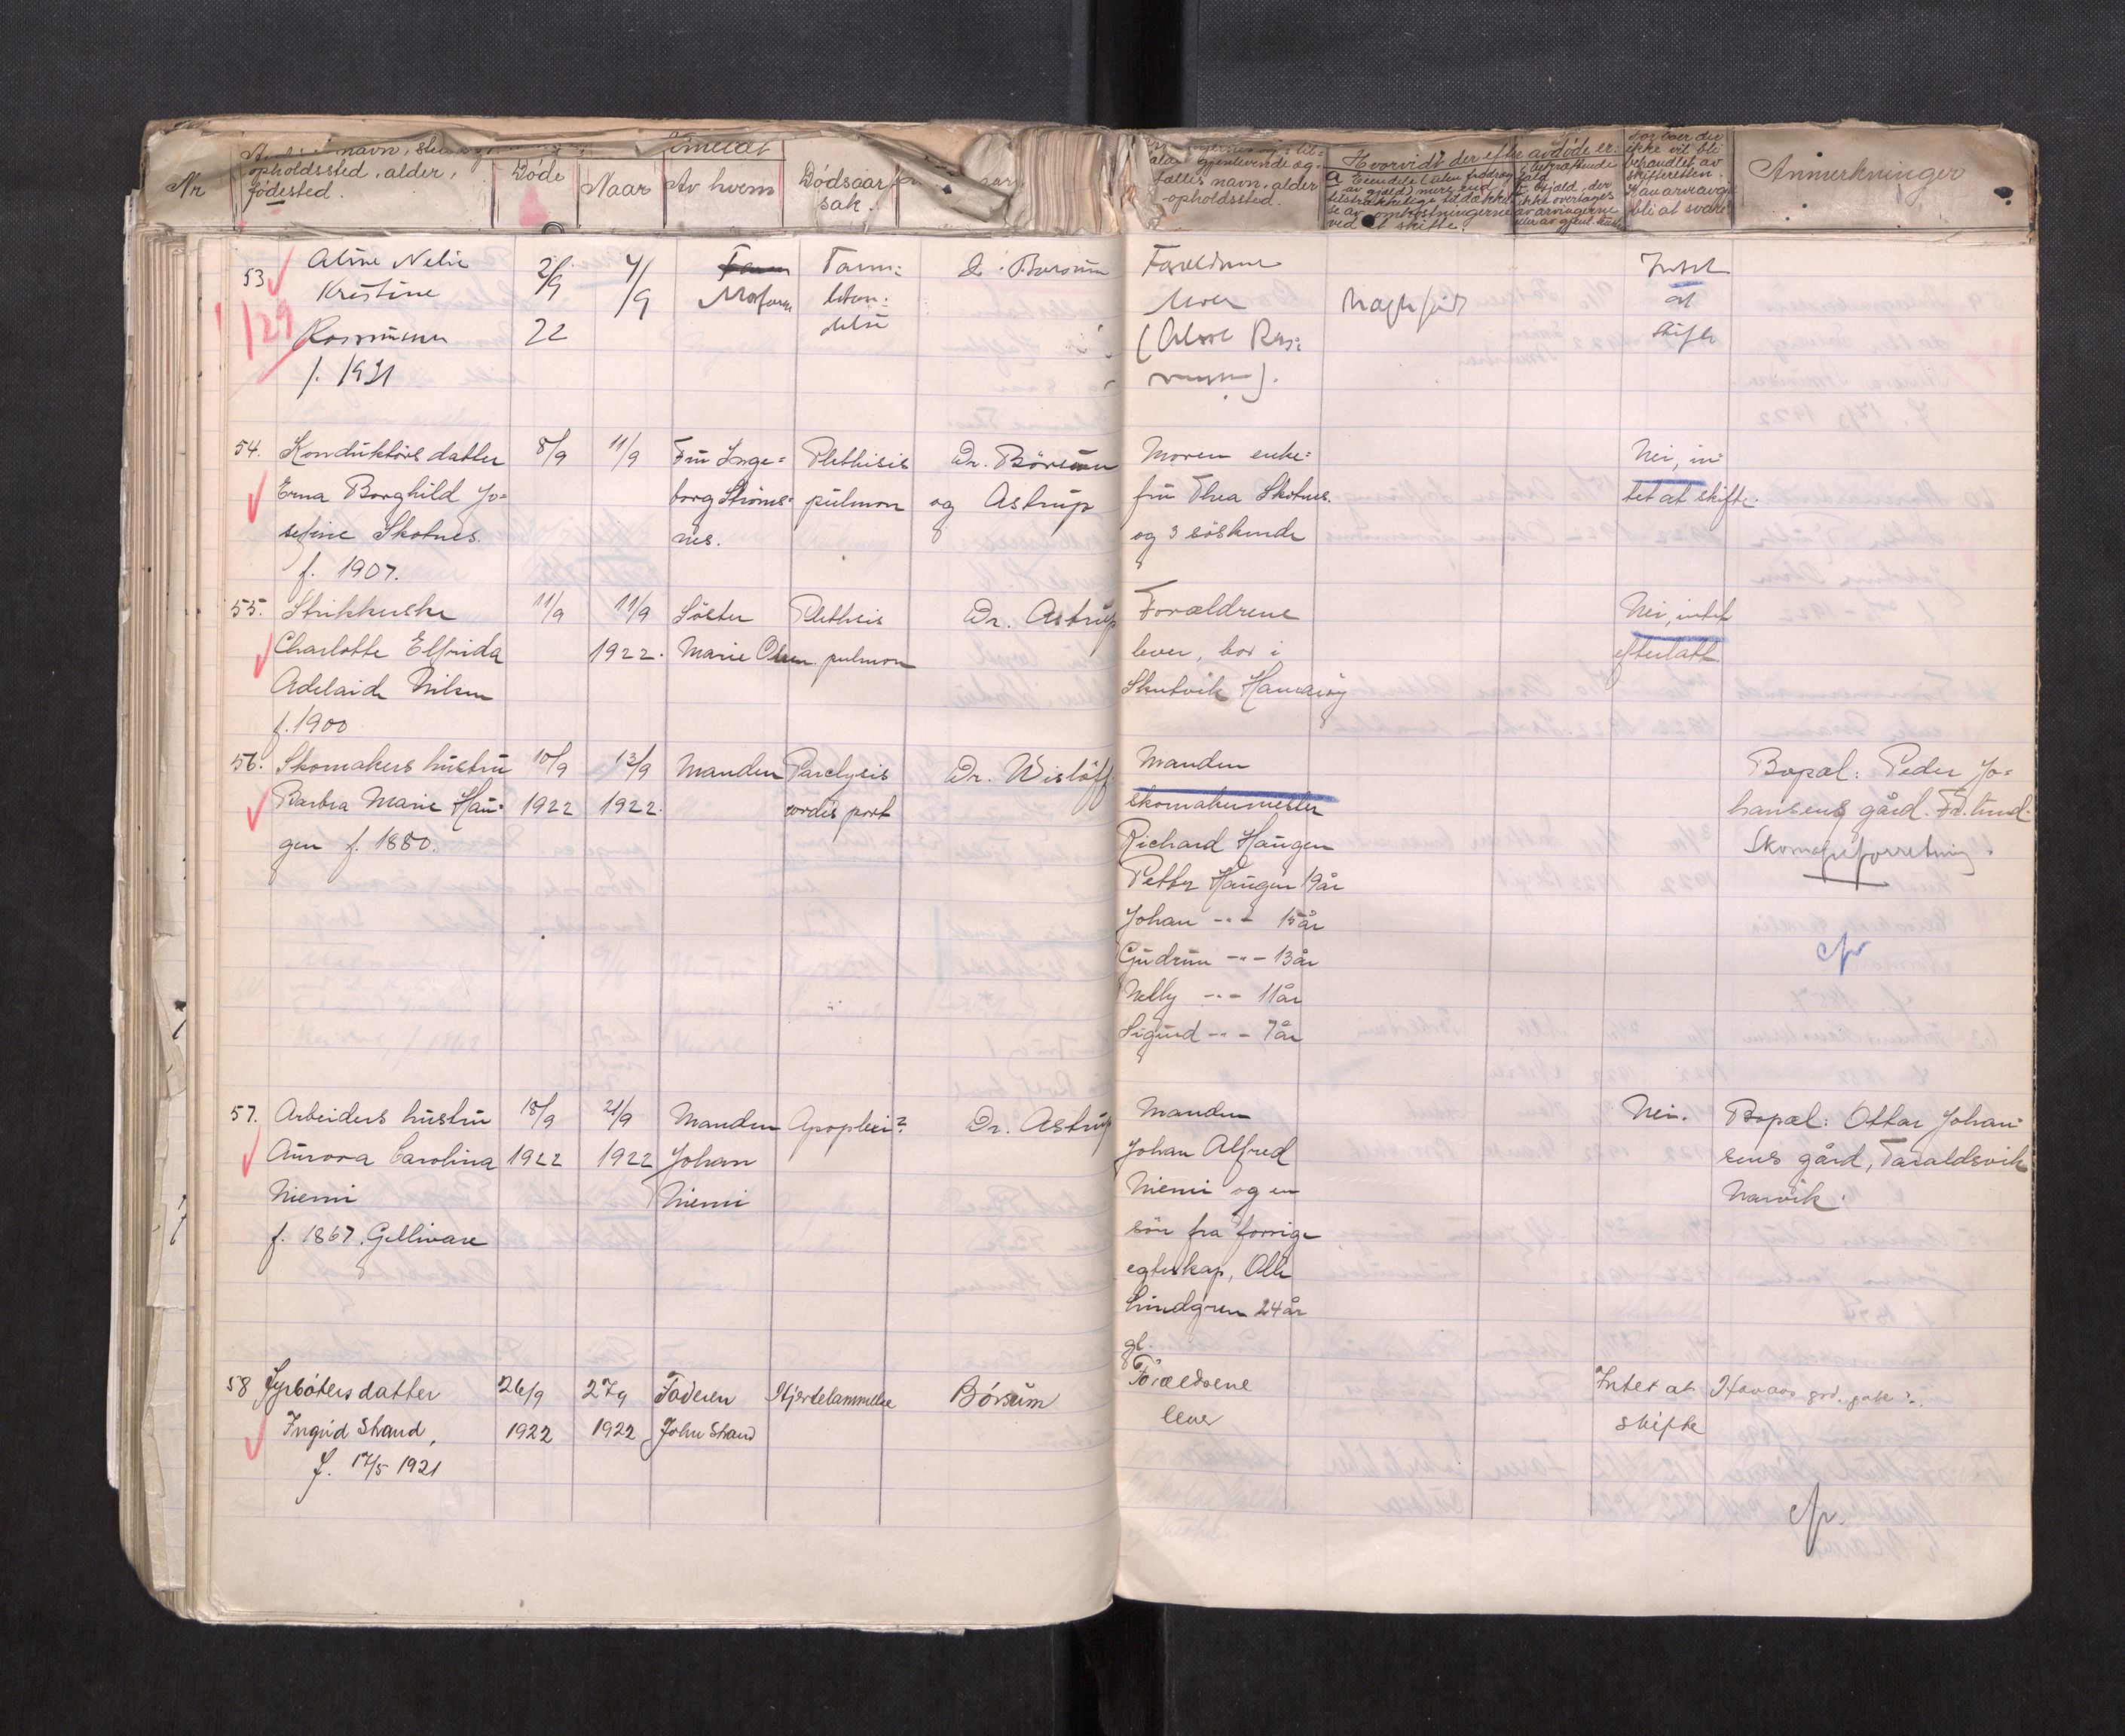 Nr
navn,
opholdssted, alder,
födested.
Döde
Naar
Av hvem
Dödsaar-
sak.
gjenlevende æg-
tefælles navn, alder
opholdssted.
Hvorvidt der efter avdöde er:
a Eiendele (uten fradrag
av gjæld) mere end
tilstrækkelige til dækkel-
se av omkostningerne
ved et skifte.
b Gjæld, der
ikke overtages
av arvingerne
ikke vil bli
behandlet av
skifteretten.
bli at svare
Anmerkninger
53
Aline Nelie
Kristine
Rasmussen
f. 1921
129
2/9
22
7/9
Morfaren
Tarm-
Borsum
Forældrene
lever
Intet
at
skifte
54. Konduktörs datter
Erna Borghild Jo=
sefine Skotnes.
f. 1907.
8/9
11/9
Fru Inge=
borg Ströms=
nes.
Phthisis
pulmon
Dr. Börsum
og Astrup
Moren enke=
fru Thea Skotnes.
og 3 söskende
Nei, in=
tet at skifte.
55. Strikkerske
Charlotte Elfrida
Adelaide Nilsen
f. 1900
11/9
11/9
1922.
Söster
Marie Olsen
Phthisis
pulmon
Dr. Astrup
Forældrene
lever, bor i
Skutvik Hamaröy
Nei, intet
efterlatt
56. Skomakers hustru
Barbra Marie Hau=
gen f. 1880.
10/9
1922
13/9
1922.
Manden
Paralysis
cordis post
Dr. Wislöff.
Manden
skomakermester
Richard Haugen
Petter Haugen 19 år
Johan -"- 15 år
Gudrun -"- 13 år
Nelly -"- 11 år
Sigurd -"- 7 år
Bopæl: Peder Jo=
hansens gård. Fr.lund.
Skomageforretning.
cfr
57. Arbeiders hustru
Aurora Carolina
Niemi
f. 1867. Gellivare
18/9
1922
21/9
1922
Manden
Johan
Niemi
Apoplexi?
Dr. Astrup
Manden
Johan Alfred
Niemi og en
sön fra forrige
egteskap, Olle
Lindgren 24 år
gl.
Nei.
Bopæl: Ottar Johan=
sens gård, Taraldsvik
Narvik.
58 Fyrbøters datter
Ingrid Strand,
f. 17/5 1921
26/9
1922
27/9
1922
Faderen
John Strand
Hjertelammelse
Børsum
86
Forældrene
lever
Intet at
skifte
cfr.